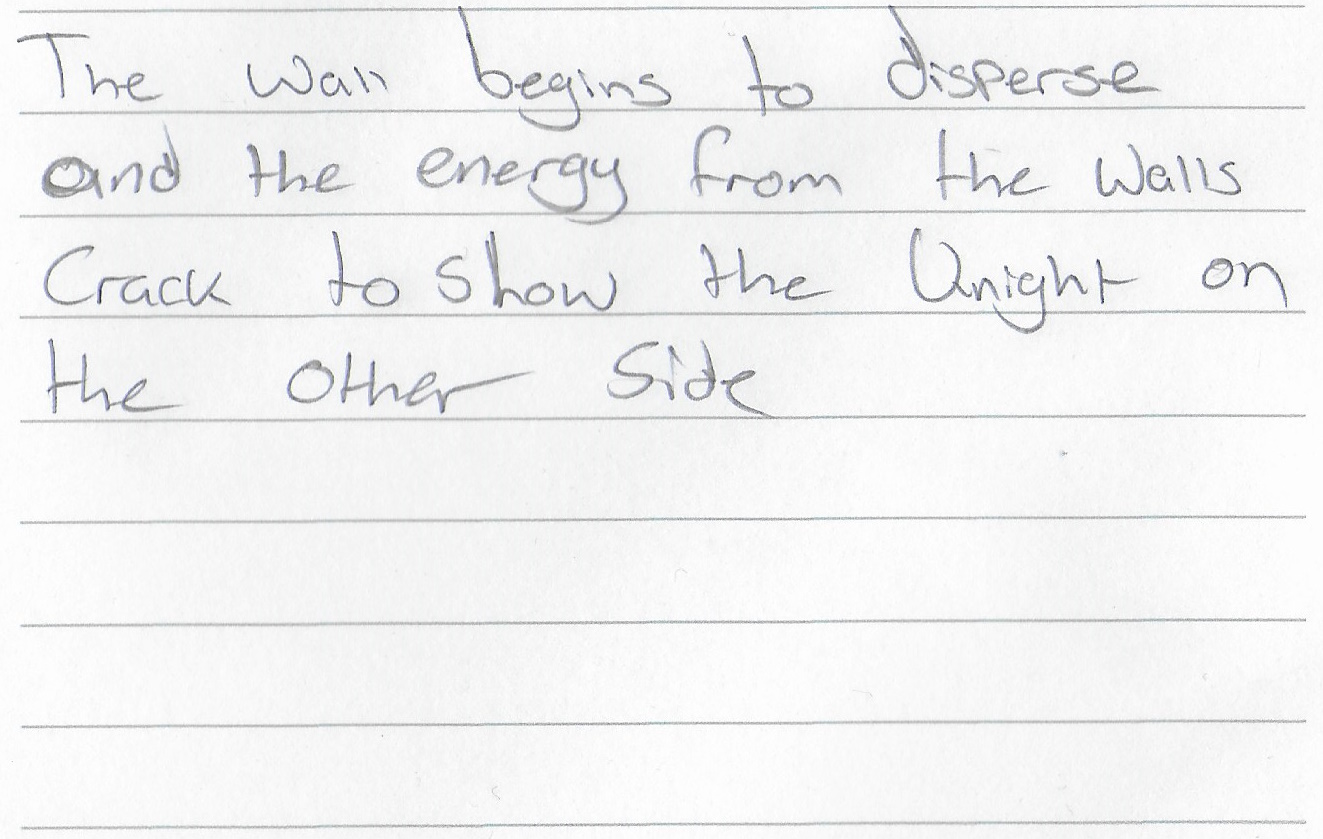 The wall begins to disperse
and the energy from the walls
Crack to show the Unight on
the other Side